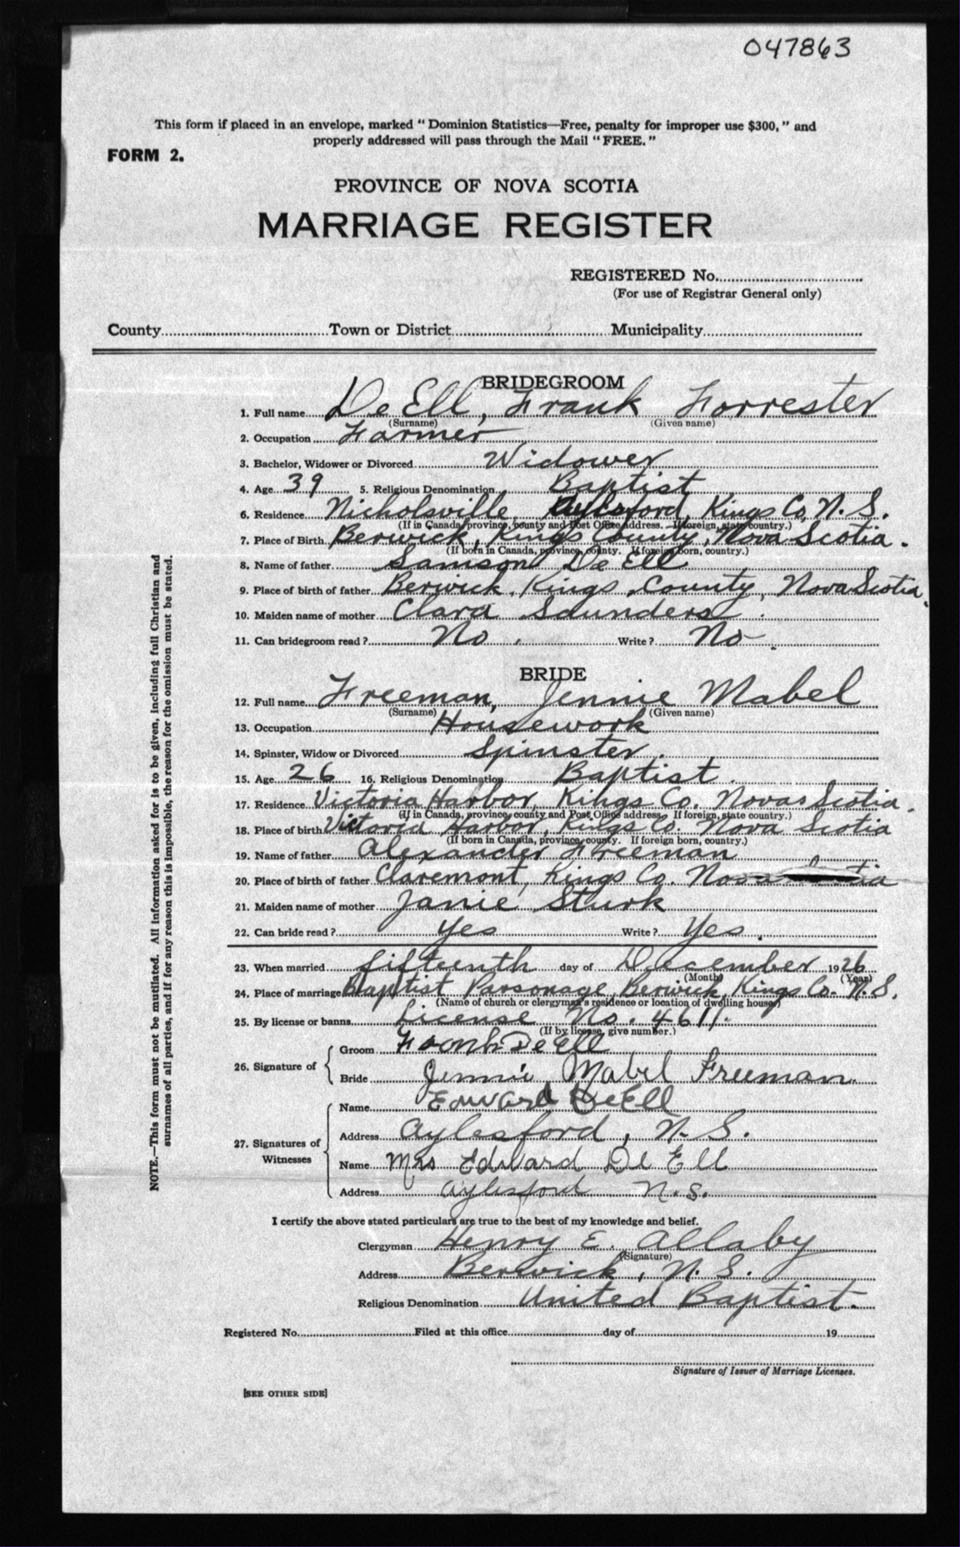 047863
This form if placed in an envelope, marked "Dominion Statistics—Free, penalty for improper use $300," and
properly addressed will pass through the Mail "FREE."
FORM 2.
PROVINCE OF NOVA SCOTIA
MARRIAGE REGISTER
REGISTERED No.
(For use of Registrar General only)
County Town or District Municipality
BRIDEGROOM
1. Full name De Ell, Frank Forrester
(Surname) (Given name)
2. Occupation Farmer
3. Bachelor, Widower or Divorced Widower
4. Age 39 5. Religious Denomination Baptist
6. Residence Nicholsville Aylesford, Kings Co, N. S.
(If in Canada, province, county and Post Office address. If foreign, state country.)
7. Place of Birth Berwick, Kings County, Nova Scotia.
(If born in Canada, province, county. If foreign born, country.)
8. Name of father Samson De Ell
9. Place of birth of father Berwick, Kings County, Nova Scotia.
10. Maiden name of mother Clara Saunders
11. Can bridegroom read? No. Write? No
BRIDE
12. Full name Freeman, Jennie Mabel
(Surname) (Given name)
13. Occupation Housework
14. Spinster, Widow or Divorced Spinster
15. Age 26 16. Religious Denomination Baptist.
17. Residence Victoria Harbor, Kings Co. Nova Scotia.
(If in Canada, province, county and Post Office address. If foreign, state country.)
18. Place of birth Victoria Harbor, Kings Co. Nova Scotia
(If born in Canada, province, county. If foreign born, country.)
19. Name of father Alexander Freeman
20. Place of birth of father Claremont, Kings Co. Nova
21. Maiden name of mother Janie Sturk
22. Can bride read? Yes Write? Yes.
23. When married fifteenth day of December 1926
(Month) (Year)
24. Place of marriage Baptist Parsonage, Berwick, Kings Co. N. S.
(Name of church or clergyman's residence or location of dwelling house)
25. By license or banns License No. 4611.
(If by license, give number.)
26. Signature of
Groom Frank De Ell
Bride Jennie Mabel Freeman.
27. Signatures of Witnesses
Name Edward DeEll
Address Aylesford, N. S.
Name Mrs Edward De Ell
Address Aylesford N. S.
I certify the above stated particulars are true to the best of my knowledge and belief.
Clergyman Henry E. Allaby
(Signature)
Address Berwick, N. S.
Religious Denomination United Baptist.
Registered No. Filed at this office day of 19
Signature of Issuer of Marriage Licenses.
[SEE OTHER SIDE]
NOTE.—This form must not be mutilated. All information asked for is to be given, including full Christian and
surnames of all parties, and if for any reason this is impossible, the reason for the omission must be stated.